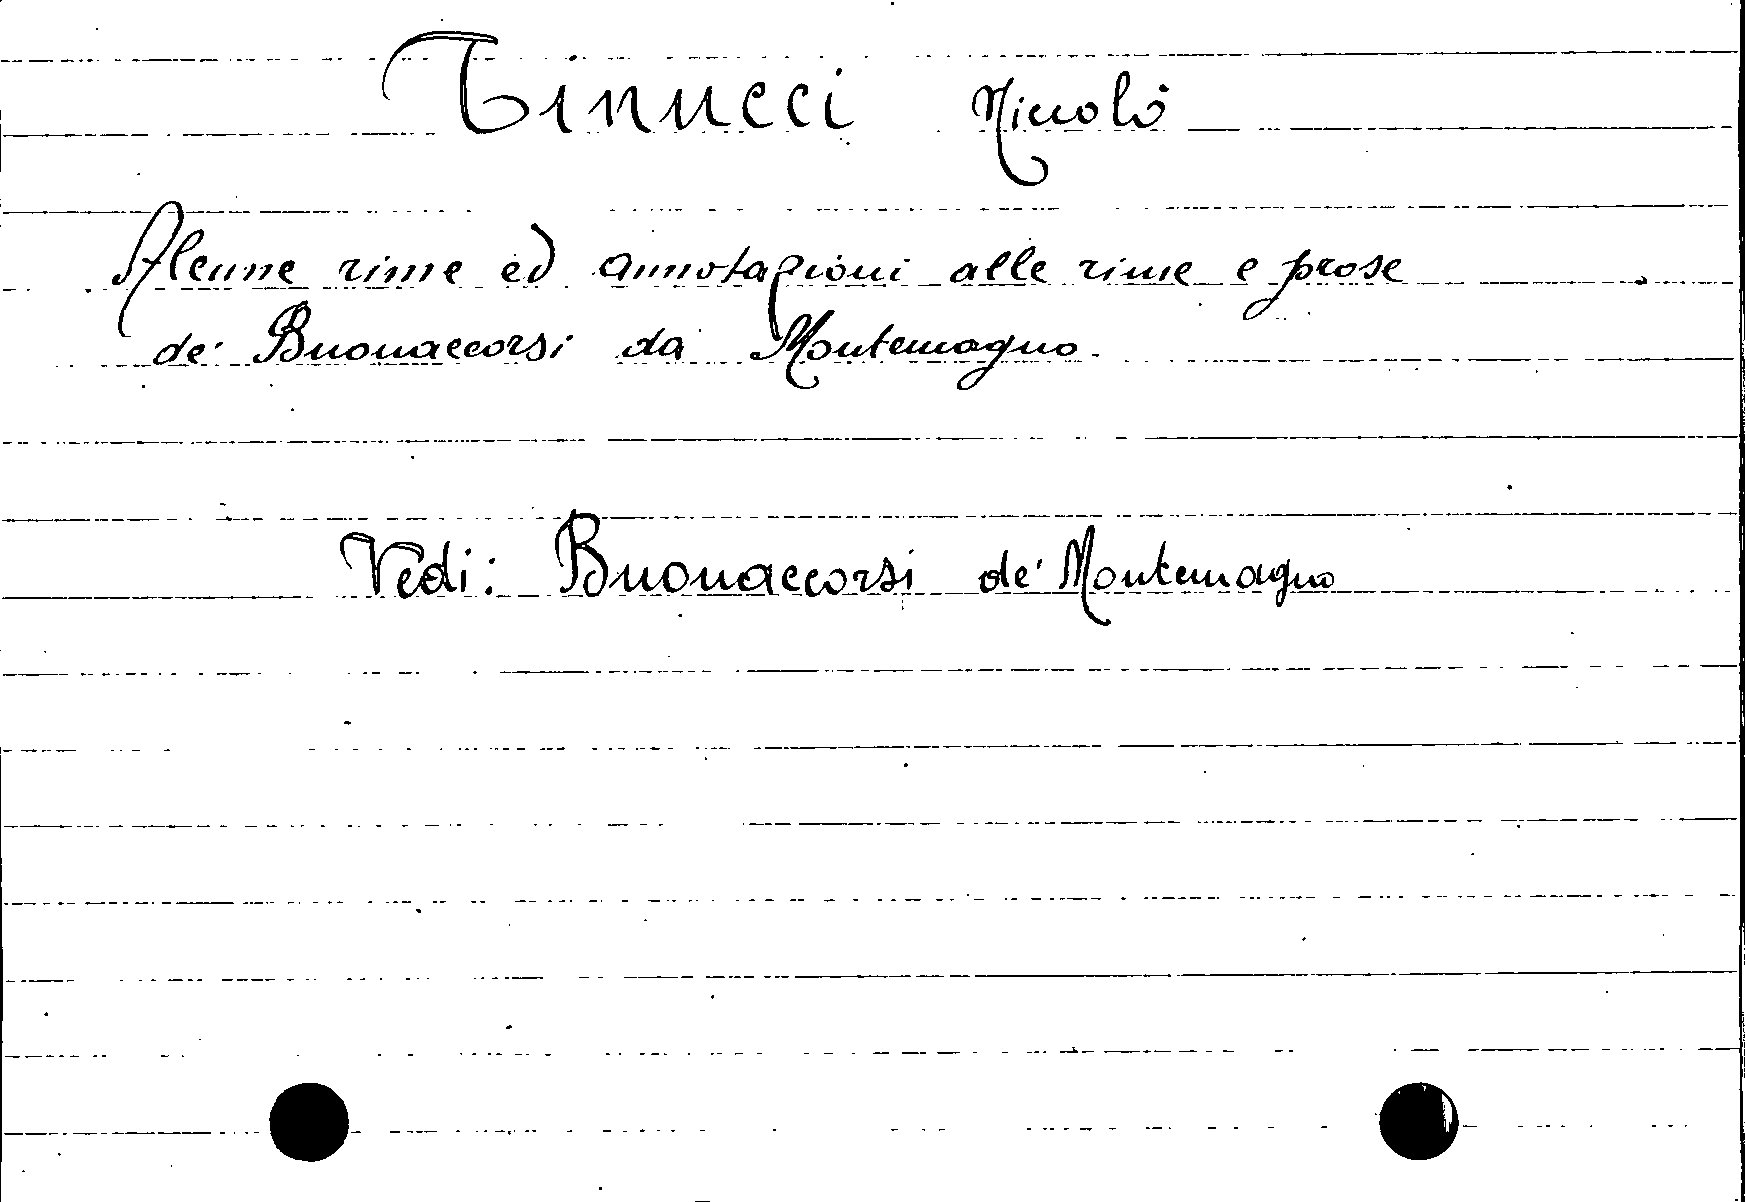 Tinucci Niccolò
Alcune rime ed annotazioni alle rime e prose
de' Buonaccorsi da Montemagno
Vedi: Buonaccorsi de' Montemagno